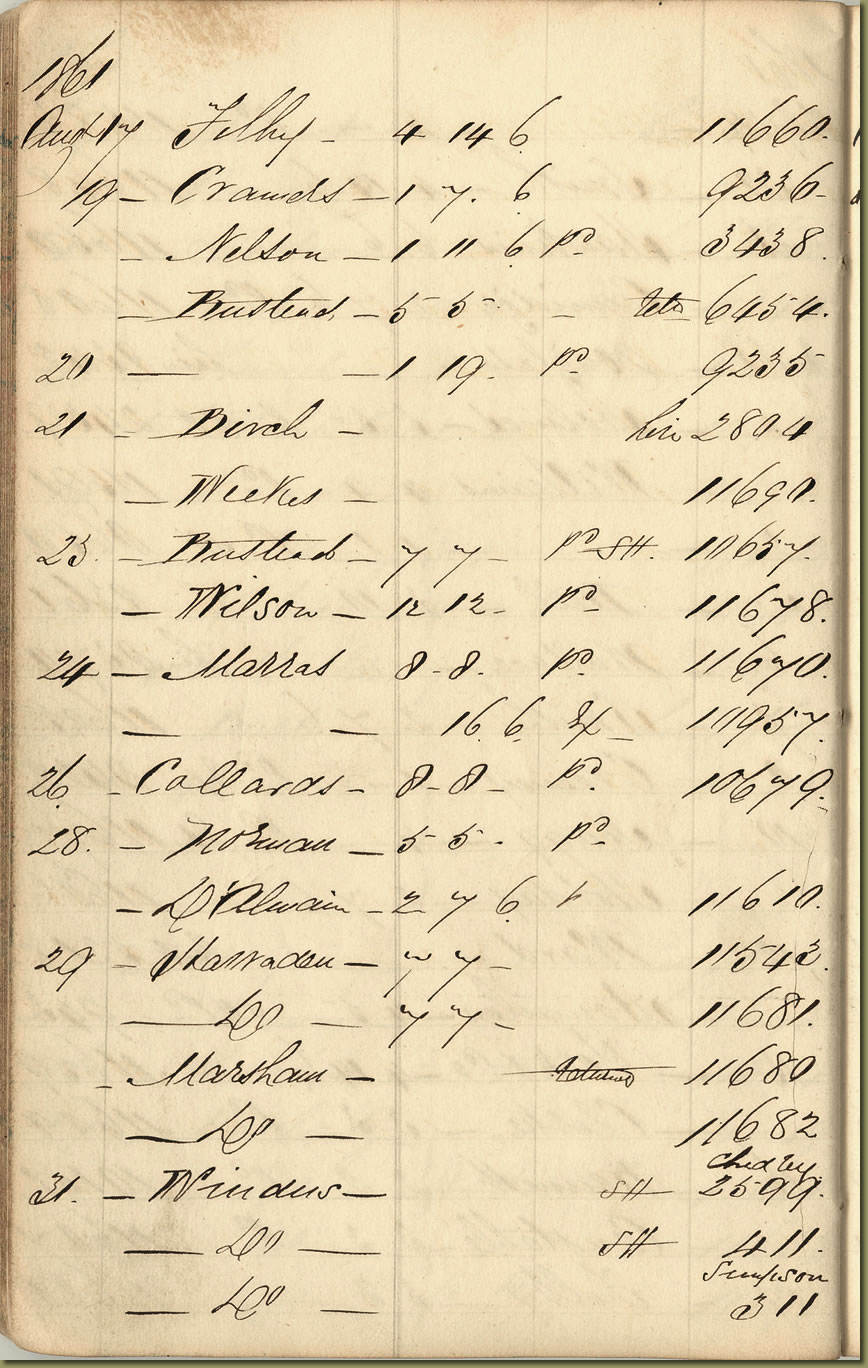 1861
Augt 17 Filby - 4 14 6 11660.
19 - Cramers - 1 7. 6 9236-
- Nelson - 1 11 6 pd 3438.
- Bustead - 5 5 - - 6454.
20 — — 1 19. pd 9235
21 - Birch - hire 2804
- Weekes - 11690.
23. - Bustead - 7 7 - pd SH. 10657.
- Wilson - 12 12 - pd 11678.
24 - Marras 8-8. pd 11670.
— — 16 6 Ex - 10957.
26. - Collards - 8-8- pd. 10679.
28. - Norman - 5 5 - pd
- D'Almain - 2 7 6 11610.
29 - - 7 7 - 11543.
— Do — 7 7 - 11681.
- Marsham - returned 11680
— Do — 11682
Chidley
31. - Windus - SH 2599.
— Do — SH 411.
Simpson
— Do — 311